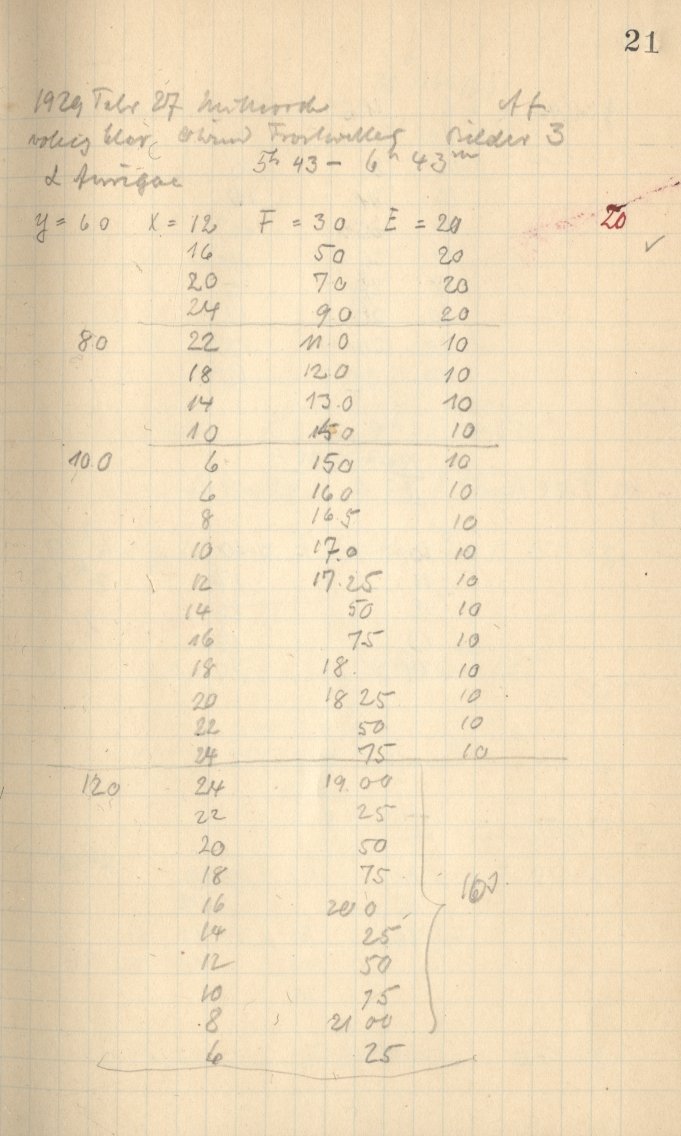 21
1929 Febr 27 Mittwoch Af
völlig klar, Wind Frostwetter Bilder 3
5h 43 - 6h 43m
α Aurigae
y = 60 X = 12 F = 30 E = 20 20
16 50 20 ✓
20 70 20
24 90 20
80 22 11.0 10
18 12.0 10
14 13.0 10
10 10
100 6 150 10
6 160 10
8 16.5 10
10 17.0 10
12 17.25 10
14 50 10
16 75 10
18 18. 10
20 18 25 10
22 50 10
24 75 10
120 24 19.00
22 25
20 50
18 75
16 20 0
14 25
12 50
10 75
8 21 00
6 25